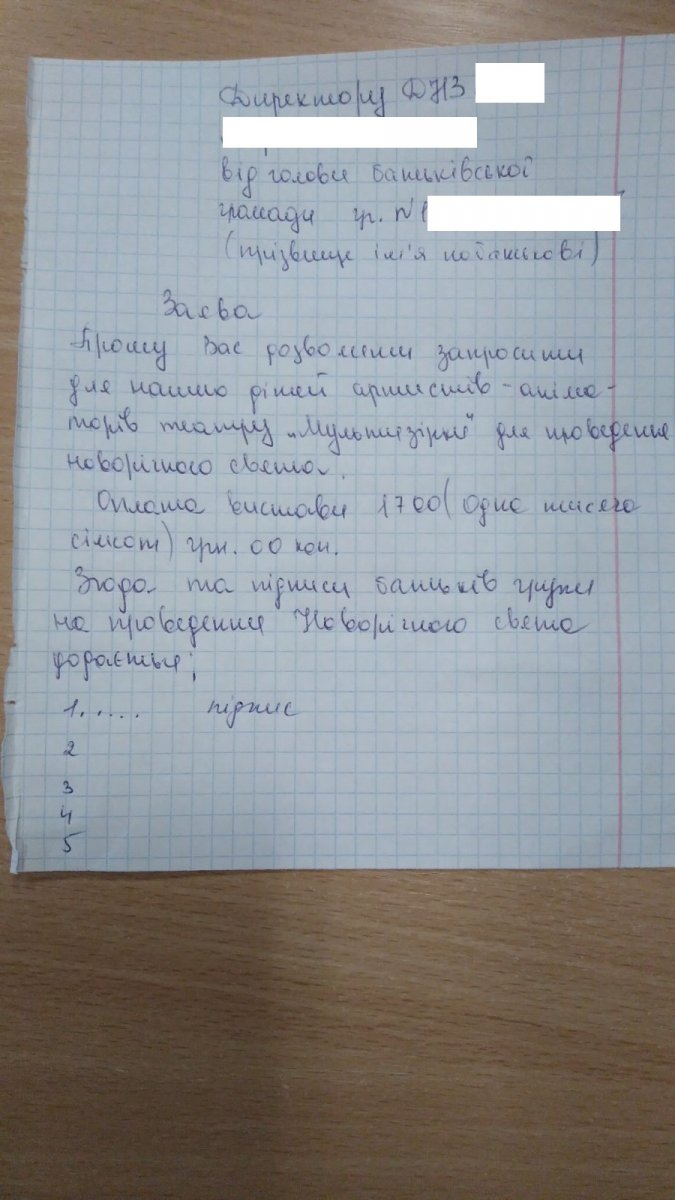 Директору ДНЗ
від голови батьківської
громади гр. №1
(прізвище ім'я побатькові)
Заява
Прошу Вас дозволити запросити
для наших дітей артистів-аніма-
торів театру „Мультизірки" для проведення
новорічного свята.
Оплата вистави 1700 (одна тисяча
сімсот) грн. 00 коп.
Згода та підписи батьків групи
на проведення Новорічного свята
додається;
1..... підпис
2
3
4
5